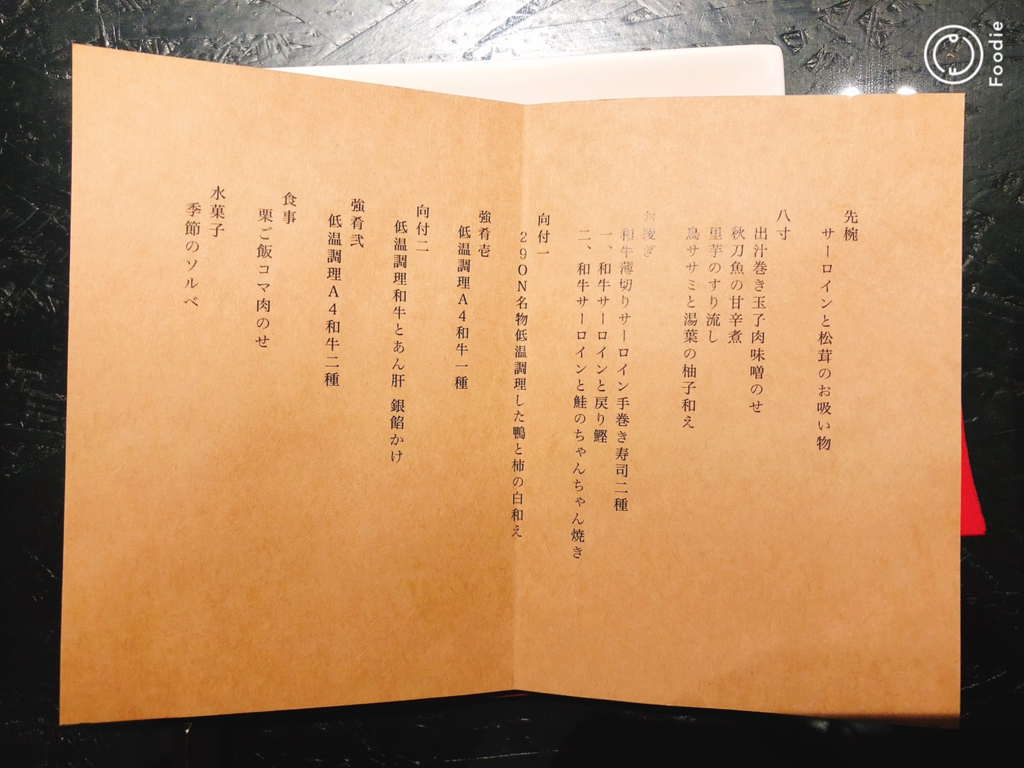 先椀
サーロインと松茸のお吸い物
八寸
出汁巻き玉子肉味噌のせ
秋刀魚の甘辛煮
里芋のすり流し
鳥ササミと湯葉の柚子和え
お凌ぎ
和牛薄切りサーロイン手巻き寿司二種
一、和牛サーロインと戻り鰹
二、和牛サーロインと鮭のちゃんちゃん焼き
向付一
29ON名物低温調理した鴨と柿の白和え
強肴壱
低温調理A4和牛一種
向付二
低温調理和牛とあん肝 銀餡かけ
強肴弐
低温調理A4和牛二種
食事
栗ご飯コマ肉のせ
水菓子
季節のソルベ
Foodie